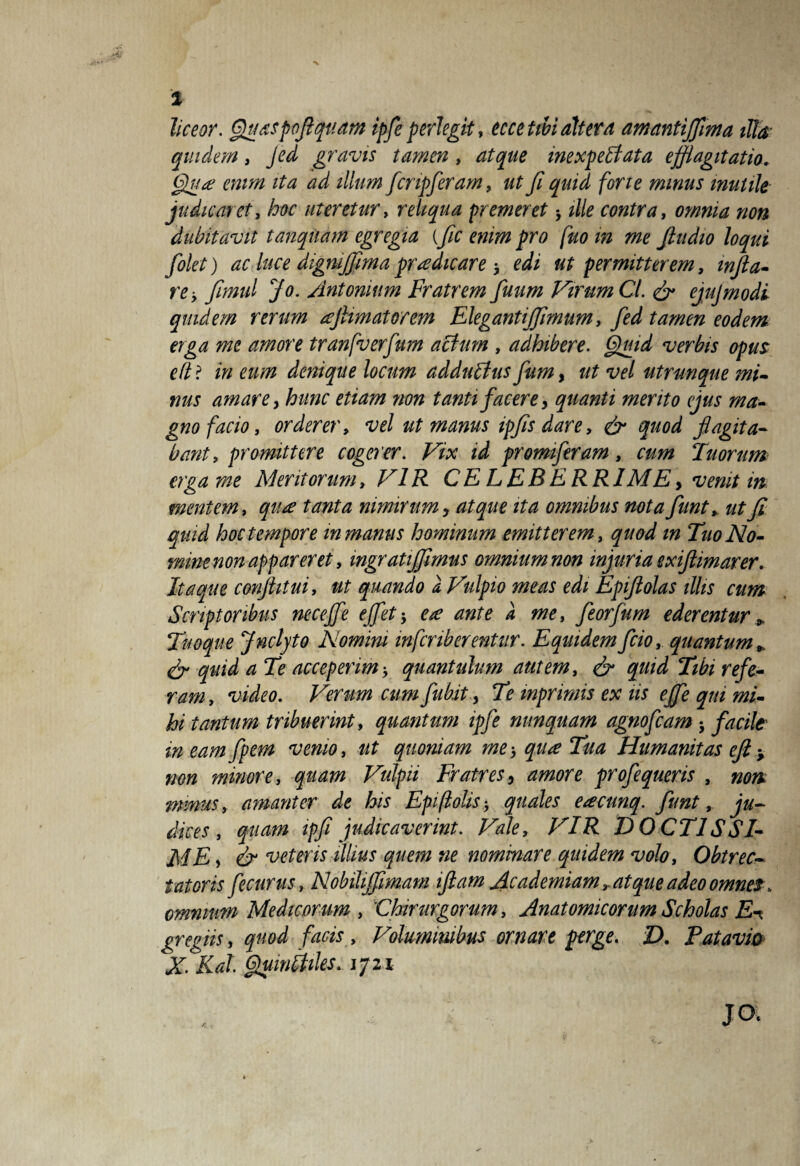 2
liceor. Quas postquam ipse perlegit, ecce tibi altera amantissima illa
quidem, sed gravis tamen, atque inexpectata efflagitatio.
Quæ enim ita ad illum scripseram, ut si quid forte minus inutile
judicaret, hoc uteretur, reliqua premeret; ille contra, omnia non
dubitavit tanquam egregia (sic enim pro suo in me studio loqui
solet) ac luce dignissima prædicare; edi ut permitterem, insta-
re; simul Jo. Antonium Fratrem suum Virum Cl. & ejusmodi
quidem rerum æstimatorem Elegantissimum, sed tamen eodem
erga me amore transversum actum, adhibere. Quid verbis opus
est? in eum denique locum adductus sum, ut vel utrunque mi-
nus amare, hunc etiam non tanti facere, quanti merito ejus ma-
gno facio, orderer, vel ut manus ipsis dare, & quod flagita-
bant, promittere cogerer. Vix id promiseram, cum Tuorum
erga me Meritorum, VIR CELEBERRIME, venit in
mentem, quæ tanta nimirum, atque ita omnibus nota sunt, ut si
quid hoc tempore in manus hominum emitterem, quod in Tuo No-
mine non appareret, ingratissimus omnium non injuria existimarer.
Itaque constitui, ut quando à Vulpio meas edi Epistolas illis cum
Scriptoribus necesse esset; eæ ante à me, seorsum ederentur,
Tuoque Inclyto Nomini inscriberentur. Equidem scio, quantum,
& quid a Te acceperim; quantulum autem, & quid Tibi refe-
ram, video. Verum cum subit, Te inprimis ex iis esse qui mi-
hi tantum tribuerint, quantum ipse nunquam agnoscam; facile
in eam spem venio, ut quoniam me; quæ Tua Humanitas est;
non minore, quam Vulpii Fratres, amore prosequeris, non
minus, amanter de his Epistolis; quales eæcunq. sunt, ju-
dices, quam ipsi judicaverint. Vale, VIR DOCTISSI-
ME, & veteris illius quem ne nominare quidem volo, Obtrec-
tatoris securus, Nobilissimam istam Academiam, atque adeo omnes,
omnium Medicorum, Chirurgorum, Anatomicorum Scholas E-
gregiis, quod facis, Voluminibus ornare perge. D. Patavio
X. Kal. Quinctiles. 1721
JO.